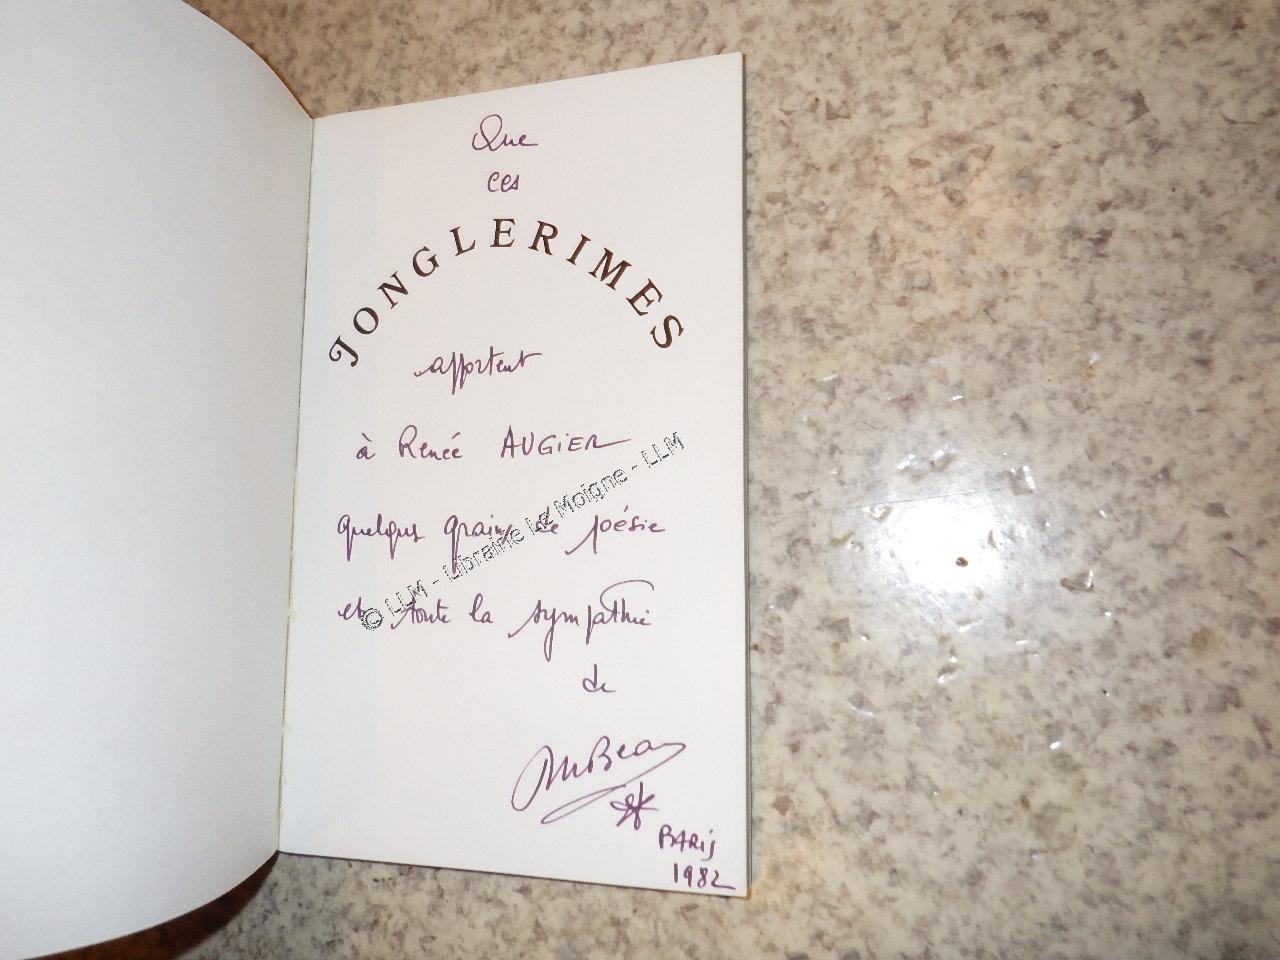 Que
ces
JONGLERIMES
apportent
à Renée AUGIER
quelques grains de poésie
et toute la sympathie
de
PARIS
1982
© LLM - Librairie Le Moigne - LLM